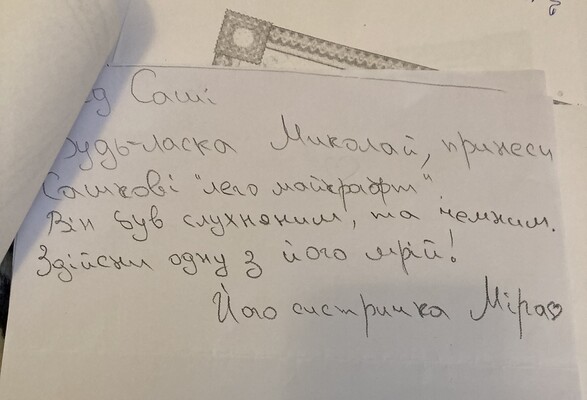 ід Саші
Будь-ласка Миколай, принеси
Сашкові "лего майкрафт".
Він був слухняним, та чемним.
Здійсни одну з його мрій!
Його систричка Міра♡